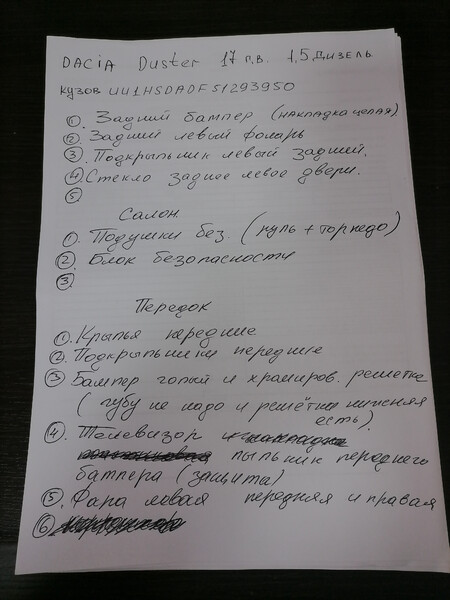 DACiA Duster 17 г.в. 1,5 Дизель
кузов UU1HSDADF51293950
① Задний бампер (накладка целая)
② Задний левый фонарь
③ Подкрыльник левый задний.
④ Стекло заднее левое двери.
⑤
Салон
①. Подушки без. (руль + торпедо)
②. Блок безопасности
③
Передок
① Крылья передние
②. Подкрыльники передние
③ Бампер голый и хромиров. решетка
( губу не надо и решётка нижняя
есть)
④. Телевизор
пыльник переднего
бампера (защита)
⑤. Фара левая передняя и правая
⑥